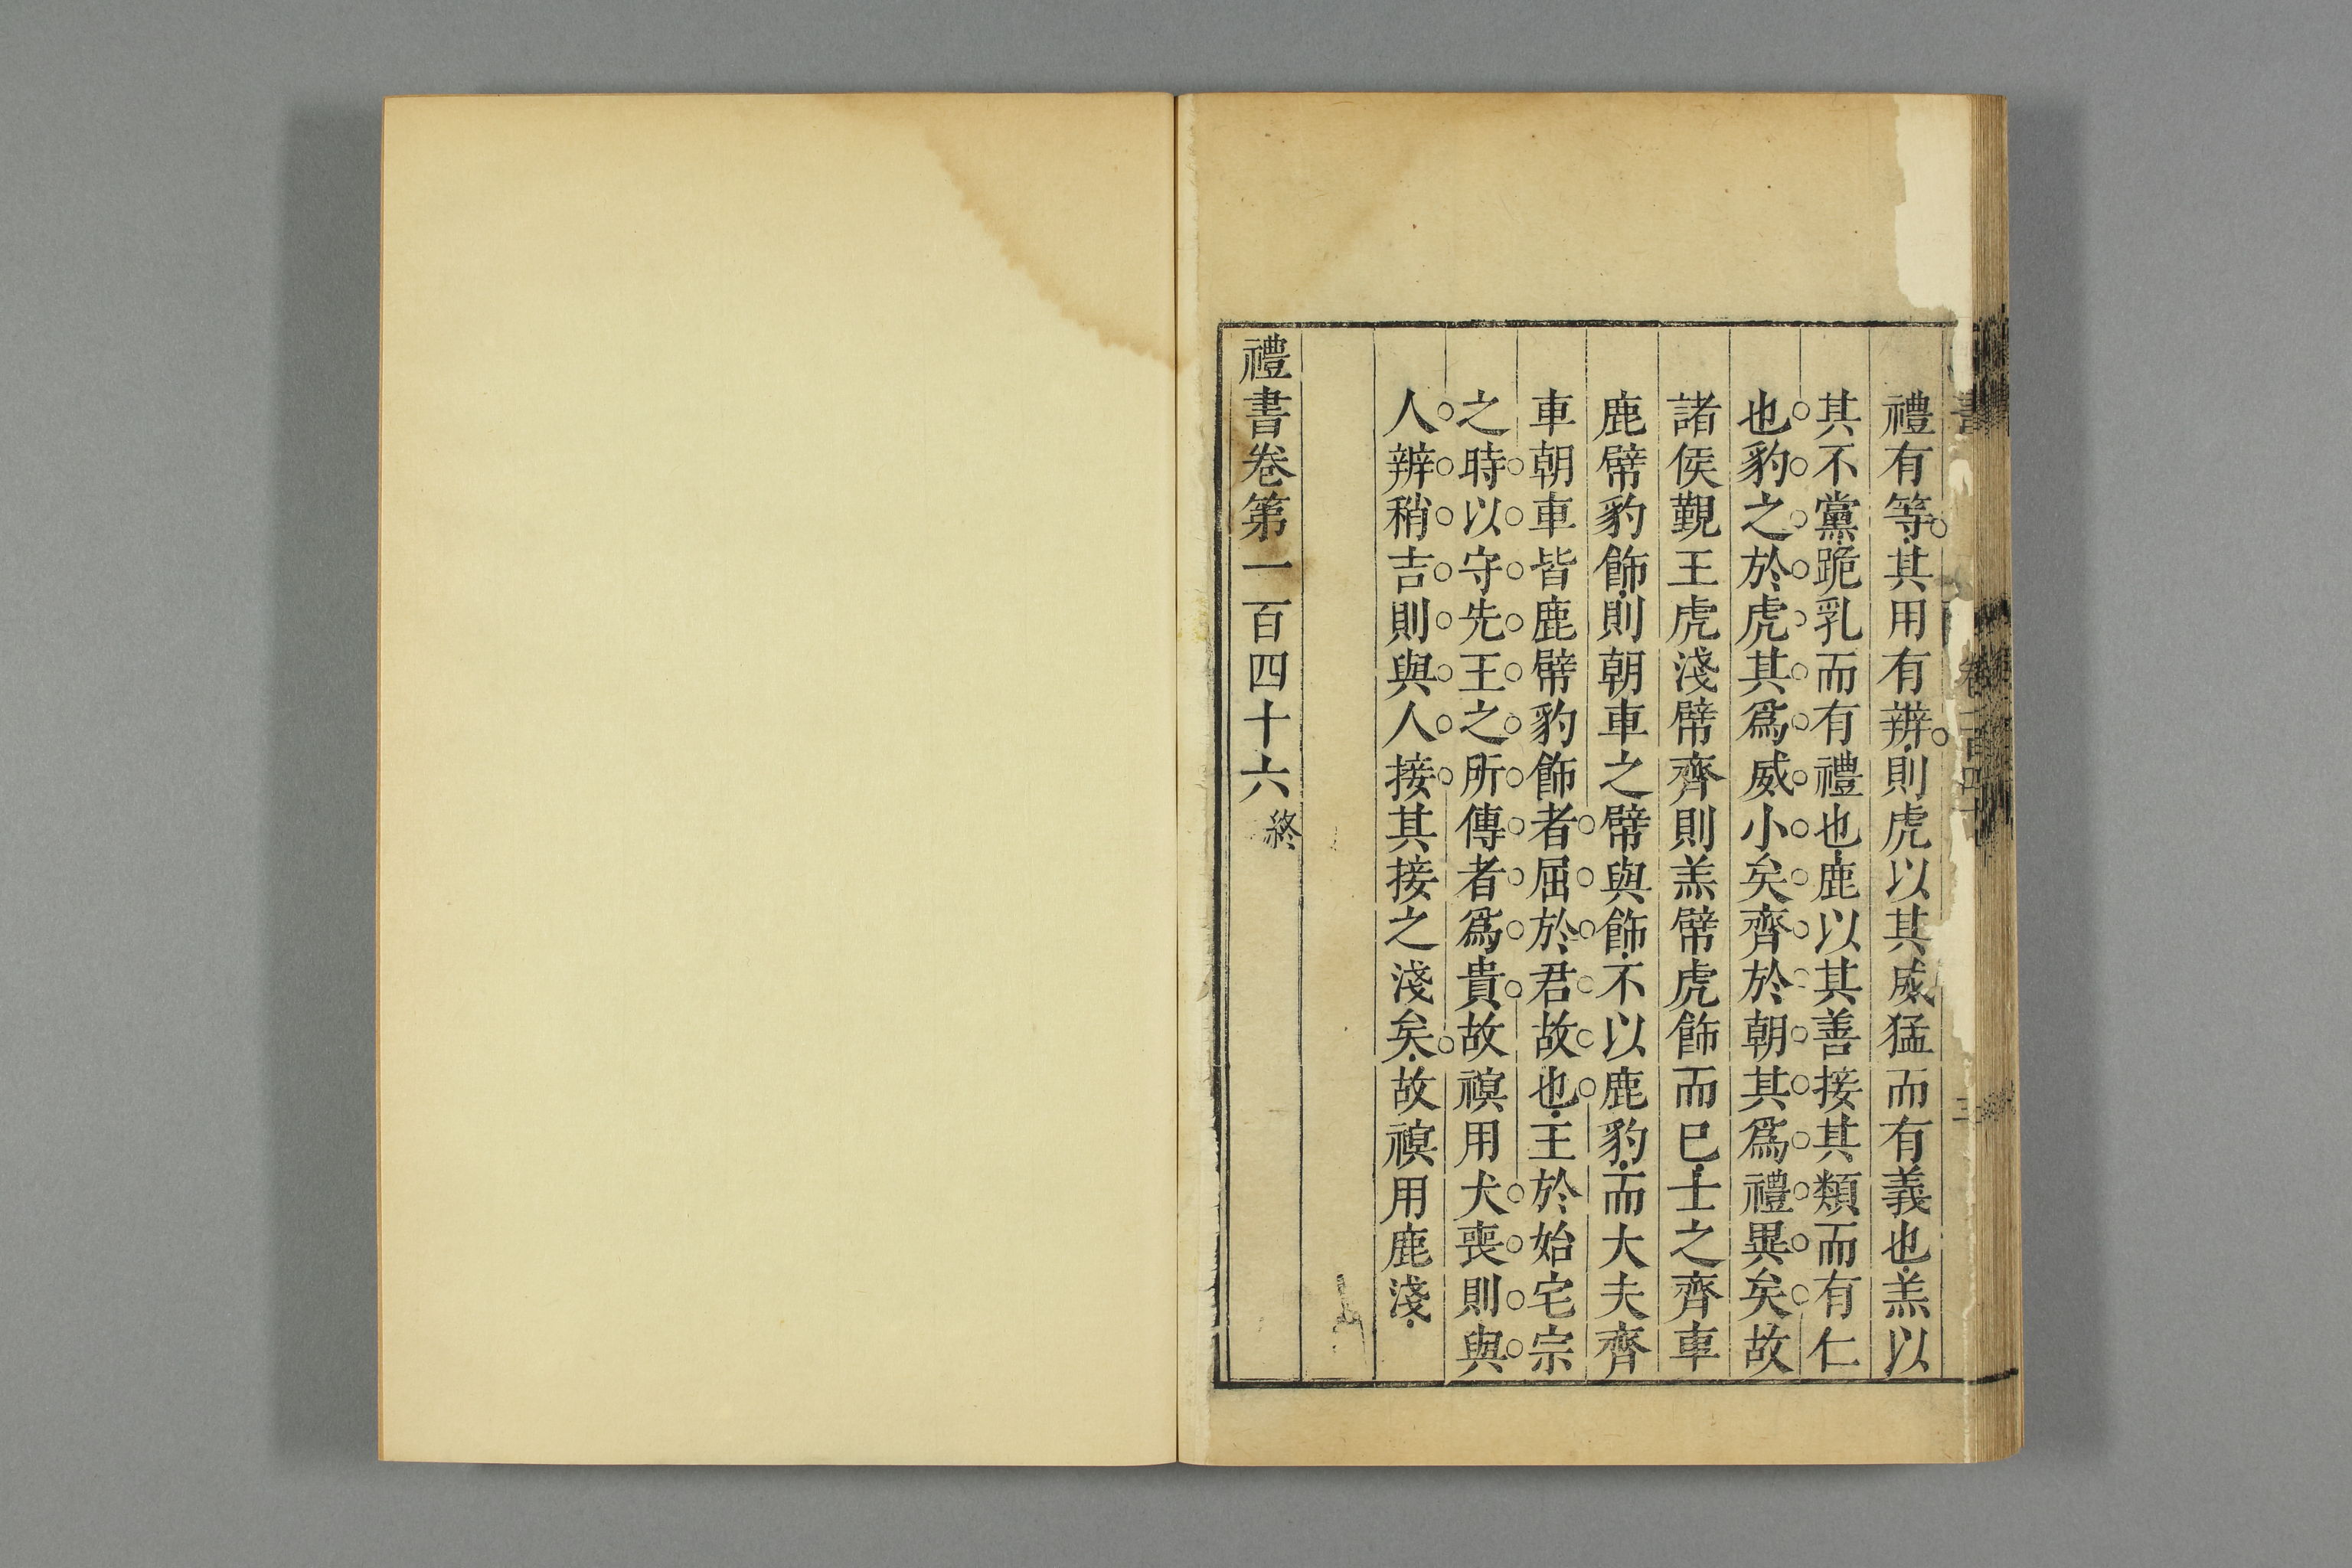 禮有等其用有辨則虎以其威猛而有義也羔以
其不黨跪乳而有禮也鹿以其善接其類而有仁
也豹之於虎其爲威小矣齊於朝其爲禮異矣故
諸侯覲王虎淺幦齊則羔幦虎飾而已士之齊車
鹿幦豹飾則朝車之幦與飾不以鹿豹而大夫齊
車朝車皆鹿幦豹飾者屈於君故也王於始宅宗
之時以守先王之所傳者爲貴故䙩用犬喪則與
人辨稍吉則與人接其接之淺矣故䙩用鹿淺
禮書卷第一百四十六 終